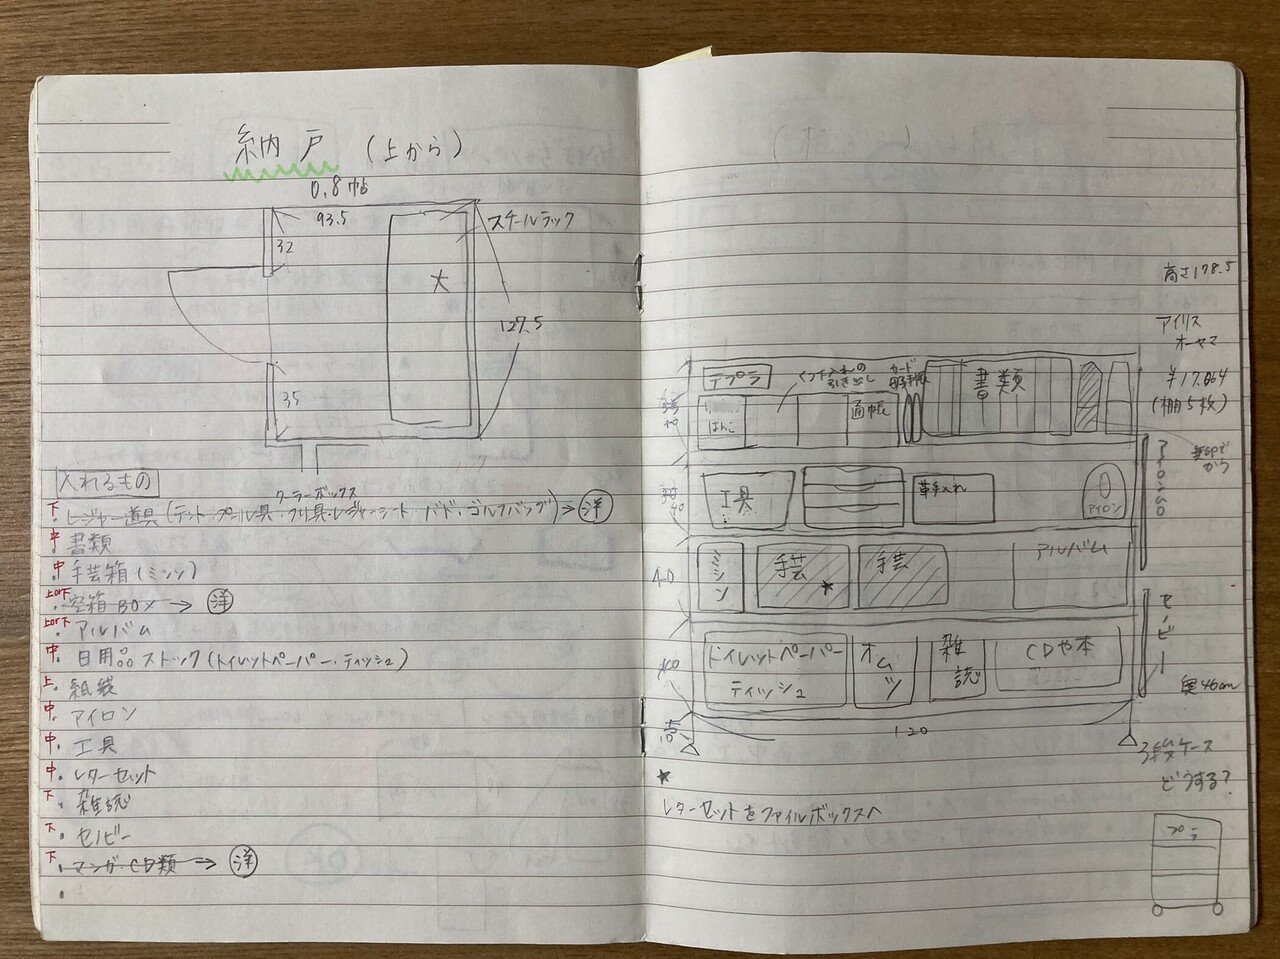 納戸 (上から)
0.8帖
93.5
スチールラック
32
大
127.5
35
入れるもの
クーラーボックス
下 ・レジャー道具(テント・プール具・つり具・レジャーシート・バド・ゴルフバッグ)→洋
中 ・書類
中 ・手芸箱(ミシン)
上or下 ・空箱BOX→洋
上or下 ・アルバム
中 ・日用品ストック(トイレットペーパー・ティッシュ)
上 ・紙袋
中 ・アイロン
中 ・工具
中 ・レターセット
下 ・雑誌
下 ・セノビー
下 ・マンガ・CD類→洋
高さ178.5
アイリス
オーヤマ
¥17.064
(棚5枚)
テプラ
引き出し
カード
母子手帳
書類
はんこ
通帳
工具
革手入れ
アイロン
40
ミシン
手芸
★
手芸
アルバム
40
トイレットペーパー
ティッシュ
オムツ
雑誌
CDや本
40
セノビー
奥46cm
120
3段ケース
どうする?
★
レターセットをファイルボックスへ
プラ